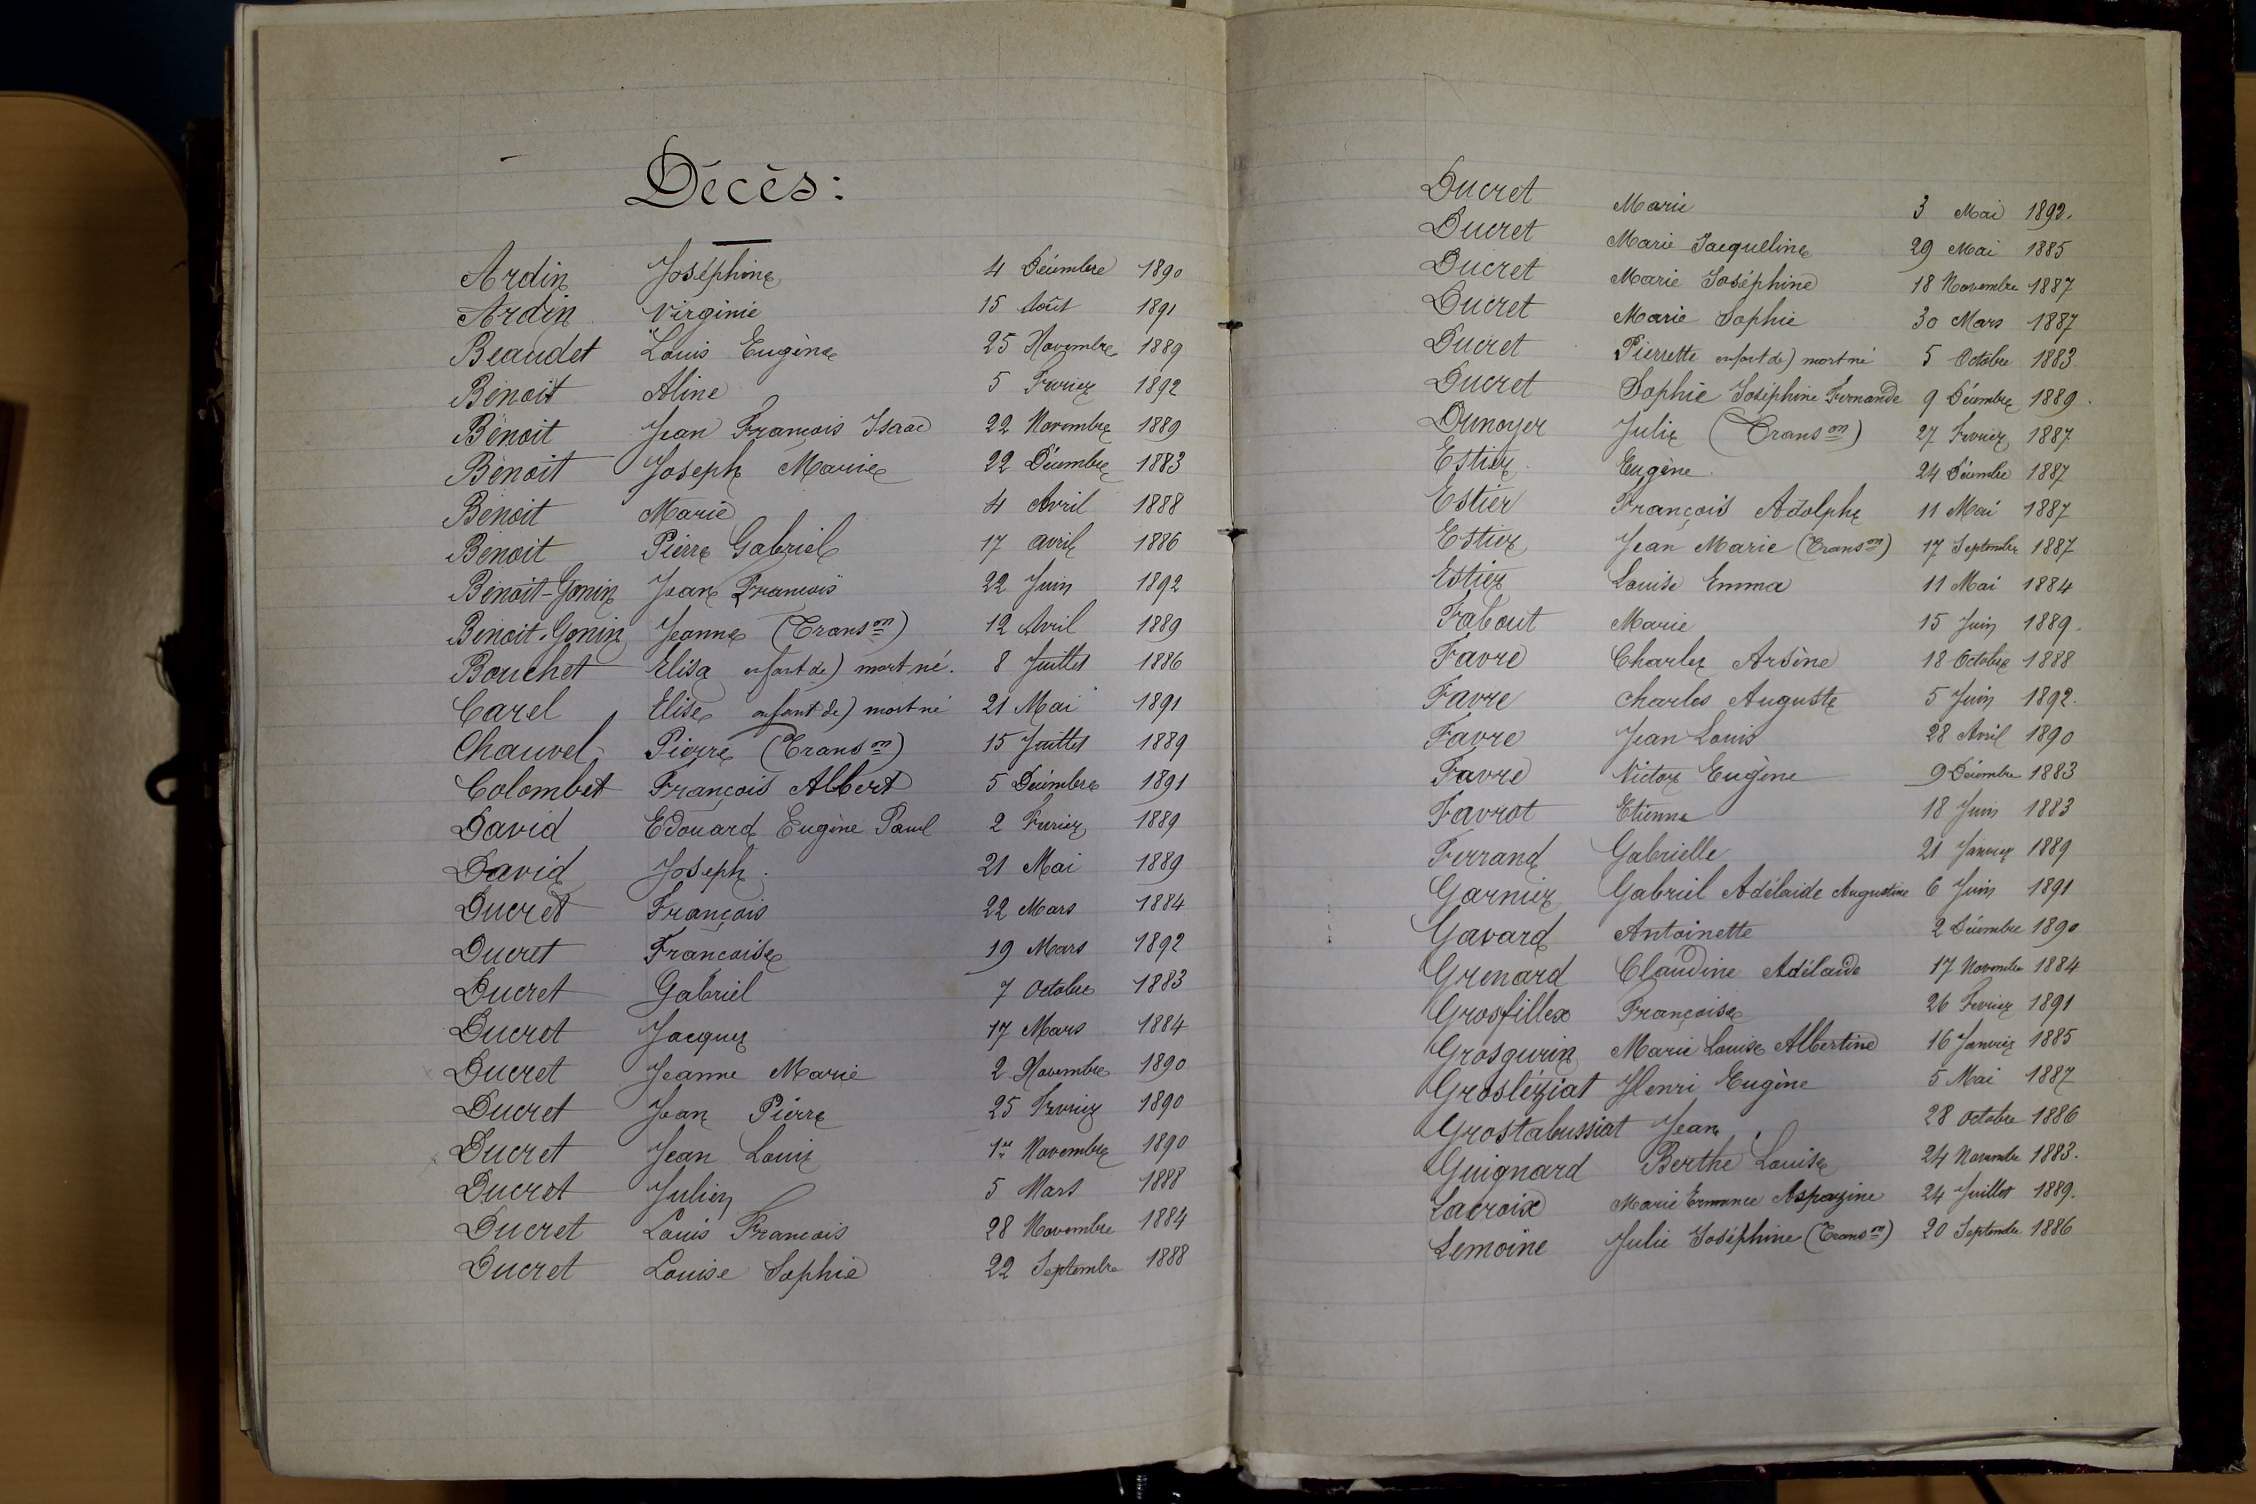 Décès :
Ardin Joséphine 4 Décembre 1890
Ardin Virginie 15 Août 1891
Beaudet Louis Eugène 25 Novembre 1889
Benoit Aline 5 Fevrier 1892
Bénoit Jean François Isaac 22 Novembre 1889
Bénoit Joseph Marie 22 Décembre 1883
Bénoit Marie 4 Avril 1888
Bénoit Pierre Gabriel 17 avril 1886
Bénoit-Gonin Jean François 22 Juin 1892
Benoit-Gonin Jeanne (Transon) 12 Avril 1889
Bouchet Elisa enfant de) mort né. 8 Juillet 1886
Carel Elise enfant de) mort né 21 Mai 1891
Chauvel Pierre (Transon) 15 Juillet 1889
Colombet François Albert 5 Décembre 1891
David Edouard Eugène Paul 2 Fevrier 1889
David Joseph. 21 Mai 1889
Ducret François 22 Mars 1884
Ducret Francoise 19 Mars 1892
Ducret Gabriel 7 Octobre 1883
Ducret Jacques 17 Mars 1884
Ducret Jeanne Marie 2 Novembre 1890
Ducret Jean Pierre 25 Fevrier 1890
Ducret Jean Louis 1er Novembre 1890
Ducret Julien 5 Mars 1888
Ducret Louis Francois 28 Novembre 1884
Ducret Louise Sophie 22 Septembre 1888
Ducret Marie 3 Mai 1892.
Ducret Marie Jacqueline 29 Mai 1885
Ducret Marie Joséphine 18 Novembre 1887
Ducret Marie Sophie 30 Mars 1887
Ducret Pierrette enfant de) mort né 5 Octobre 1883
Ducret Sophie Joséphine Fernande 9 Décembre 1889.
Dunoyer Julie (Transon) 27 Fevrier 1887
Estier Eugène. 24 Décembre 1887
Estier François Adolphe 11 Mai 1887
Estier Jean Marie (Transon) 17 Septembre 1887
Estier Louise Emma 11 Mai 1884
Fabout Marie 15 Juin 1889.
Favre Charles Arsène 18 Octobre 1888
Favre Charles Auguste 5 Juin 1892.
Favre Jean Louis 28 Avril 1890
Favre Victor Eugène 9 Décembre 1883
Favrot Etienne 18 Juin 1883
Ferrand Gabrielle 21 Janvier 1889
Garnier Gabriel Adélaide Augustine 6 Juin 1891
Gavard Antoinette 2 Décembre 1890
Grenard Claudine Adélaide 17 Novembre 1884
Grosfillex Françoise 26 Fevrier 1891
Grosgurin Marie Louise Albertine 16 Janvier 1885
Grosléziat Henri Eugène 5 Mai 1887
Grostabussiat Jean 28 Octobre 1886
Guignard Berthe Louise 24 Novembre 1883.
Lacroix Marie Ermance 24 Juillet 1889.
Lemoine Julie Joséphine (Transon) 20 Septembre 1886